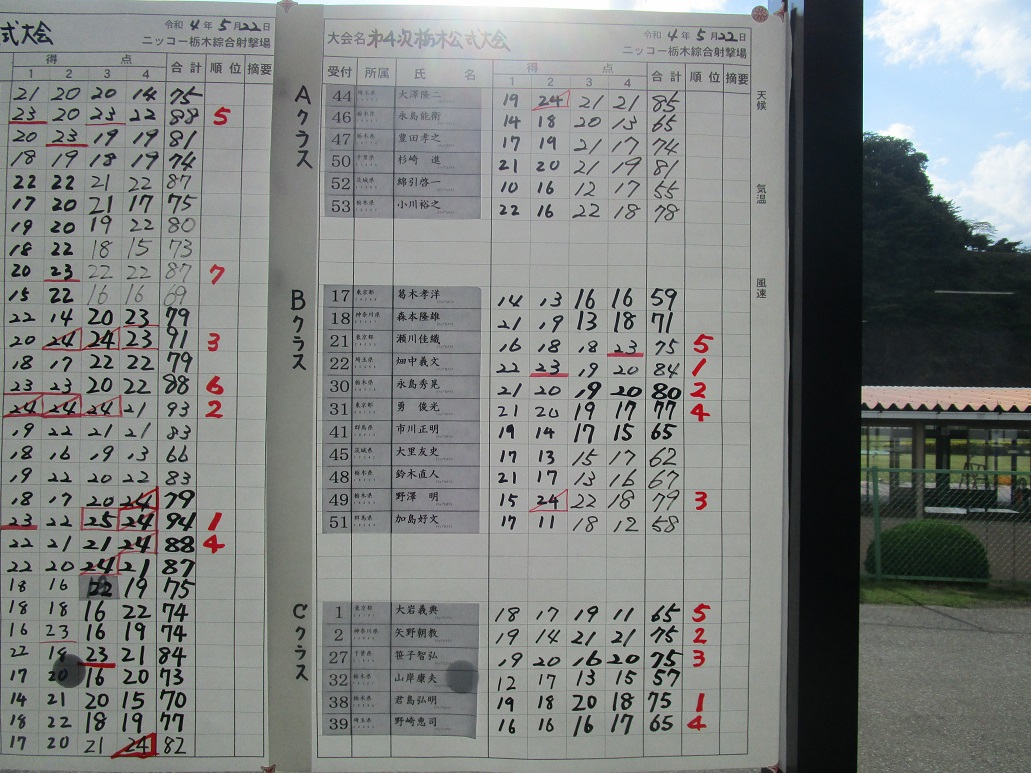 式大会
令和 4 年 5月22日
ニッコー栃木綜合射撃場
得 点 合計 順位 摘要
1 2 3 4
21 20 20 14 75
23 20 23 22 88 5
20 23 19 19 81
18 19 18 19 74
22 22 21 22 87
17 20 21 17 75
19 20 19 22 80
18 22 18 15 73
20 23 22 22 87 7
15 22 16 16 69
22 14 20 23 79
20 24 24 23 91 3
18 17 22 22 79
23 23 20 22 88 6
24 24 24 21 93 2
19 22 21 21 83
18 16 19 13 66
19 22 20 22 83
18 17 20 24 79
23 22 25 24 94 1
22 21 21 24 88 4
22 20 24 21 87
18 16 22 19 75
18 18 16 22 74
16 23 16 19 74
22 18 23 21 84
17 20 16 20 73
14 21 20 15 70
18 22 18 19 77
17 20 21 24 82
大会名 第4次栃木公式大会
令和 4 年 5月22日
ニッコー栃木綜合射撃場
受付 所属 氏 名 得 点 合計 順位 摘要
1 2 3 4
Aクラス
44 埼玉県 大澤隆二 19 24 21 21 85
46 栃木県 永島能衛 14 18 20 13 65
47 栃木県 豊田孝之 17 19 21 17 74
50 千葉県 杉崎 進 21 20 21 19 81
52 茨城県 綿引啓一 10 16 12 17 55
53 栃木県 小川裕之 22 16 22 18 78
Bクラス
17 東京都 葛木孝洋 14 13 16 16 59
18 神奈川県 森本隆雄 21 19 13 18 71
21 東京都 瀬川佳織 16 18 18 23 75 5
22 埼玉県 畑中義文 22 23 19 20 84 1
30 栃木県 永島秀晃 21 20 19 20 80 2
31 東京都 勇 俊光 21 20 19 17 77 4
41 群馬県 市川正明 19 14 17 15 65
45 茨城県 大里友史 17 13 15 17 62
48 栃木県 鈴木直人 21 17 13 16 67
49 栃木県 野澤 明 15 24 22 18 79 3
51 群馬県 加島好文 17 11 18 12 58
Cクラス
1 東京都 大岩義典 18 17 19 11 65 5
2 神奈川県 矢野朝教 19 14 21 21 75 2
27 千葉県 笹子智弘 19 20 16 20 75 3
32 栃木県 山岸康夫 12 17 13 15 57
38 栃木県 君島弘明 19 18 20 18 75 1
39 埼玉県 野崎恵司 16 16 16 17 65 4
天候
気温
風速